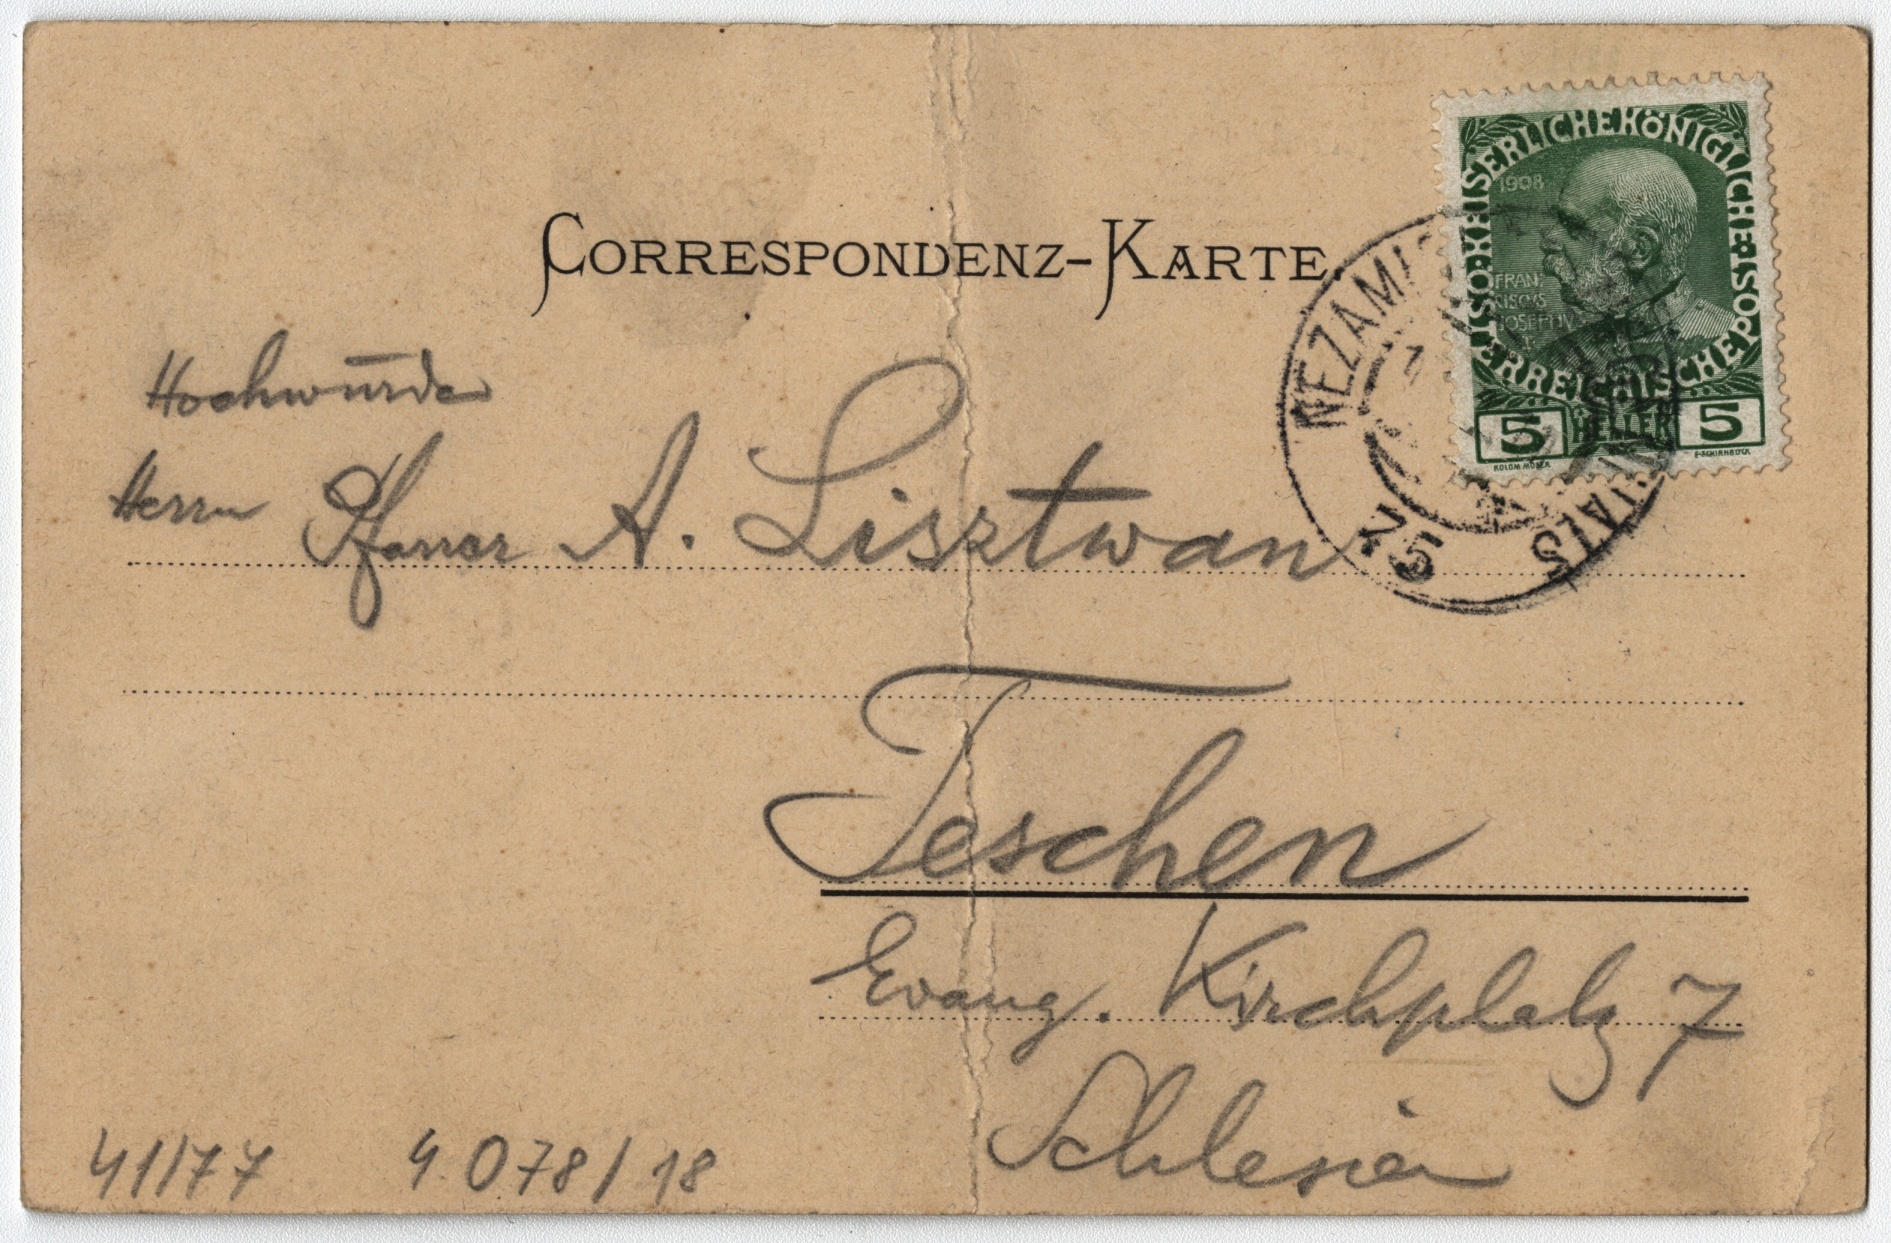 CORRESPONDENZ-KARTE.
KAISERLICHE KÖNIGLICHE ÖSTERREICHISCHE POST
1908
FRAN
CISCVS
JOSEPH
5 HELLER 5
KOLOM. MOSER
F. SCHIRNBÖCK
NEZAMI
Hochwürden
Herrn Pfarrer A. Lisztwan
Teschen
Evang. Kirchplatz 7
Schlesien
41/77 4.078/18